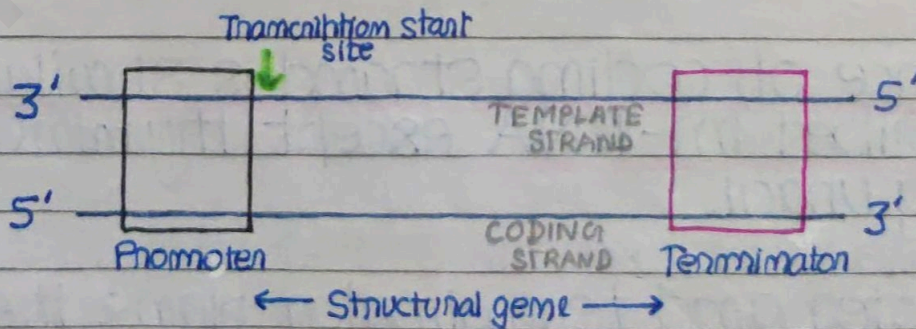 Transcription start
site
3' 5'
TEMPLATE
STRAND
5' 3'
CODING
STRAND
Promoter Terminator
← Structural gene →